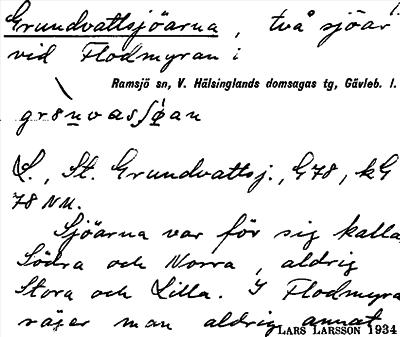 Grundvattsjöarna, två sjöar
vid Flodmyran i
Ramsjö sn, V. Hälsinglands domsagas tg, Gävleb. l.
L., St. Grundvattsj., G78, kG
78 NU.
Sjöarna var för sig kalla
Södra och Norra, aldrig
Stora och Lilla. I Flodmyra
säjer man aldrig annat
LARS LARSSON 1934